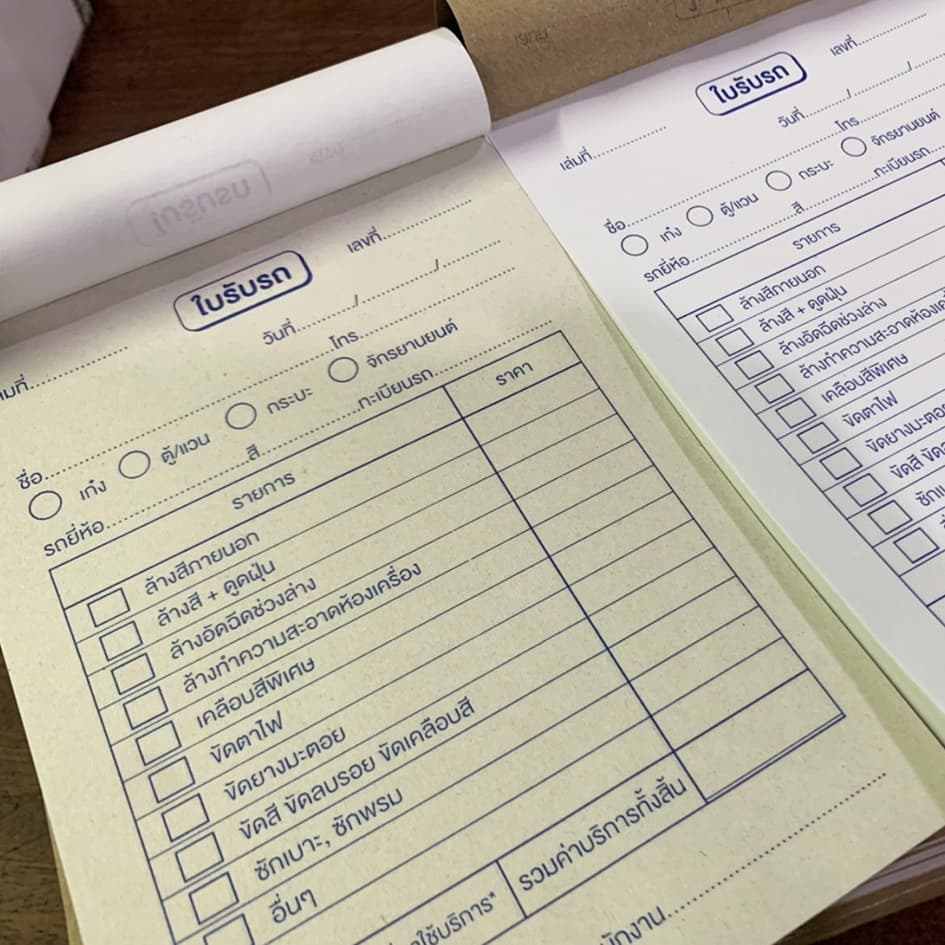 ใบรับรถ
เลขที่
ล่มที่
วันที่ / /
ชื่อ โทร
เก๋ง ตู้/แวน กระบะ จักรยานยนต์
รถยี่ห้อ สี ทะเบียนรถ
รายการ ราคา
ล้างสีภายนอก
ล้างสี + ดูดฝุ่น
ล้างอัดฉีดช่วงล่าง
ล้างทำความสะอาดห้องเครื่อง
เคลือบสีพิเศษ
ขัดตาไฟ
ขัดยางมะตอย
ขัดสี ขัดลบรอย ขัดเคลือบสี
ซักเบาะ, ซักพรม
อื่นๆ
ใช้บริการ* รวมค่าบริการทั้งสิ้น
ใบรับรถ
เลขที่
เล่มที่
วันที่ / /
ชื่อ โทร
เก๋ง ตู้/แวน กระบะ จักรยานยนต์
รถยี่ห้อ สี ทะเบียนรถ
รายการ
ล้างสีภายนอก
ล้างสี + ดูดฝุ่น
ล้างอัดฉีดช่วงล่าง
ล้างทำความสะอาดห้องเค
เคลือบสีพิเศษ
ขัดตาไฟ
ขัดยางมะตอ
ขัดสี ขัด
ซักเ